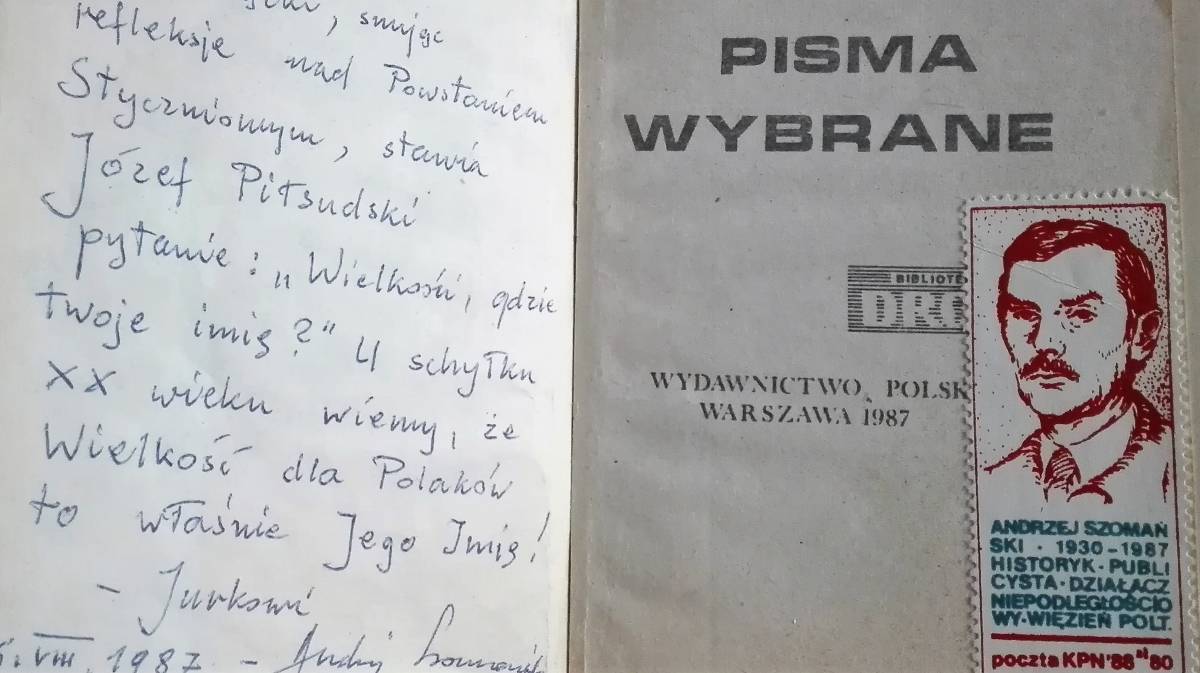 , snując
refleksje nad Powstaniem
Styczniowym, stawia
Józef Piłsudski
pytanie: „Wielkość, gdzie
twoje imię?" U schyłku
XX wieku wiemy, że
Wielkość dla Polaków
to właśnie Jego Imię!
- Jurkowi
VIII. 1987 - Andrzej
PISMA
WYBRANE
BIBLIOTE
DRO
WYDAWNICTWO POLSK
WARSZAWA 1987
ANDRZEJ SZOMAŃ
SKI · 1930-1987
HISTORYK · PUBLI
CYSTA · DZIAŁACZ
NIEPODLEGŁOŚCIO
WY · WIĘZIEŃ POLT.
poczta KPN'88 zł 80